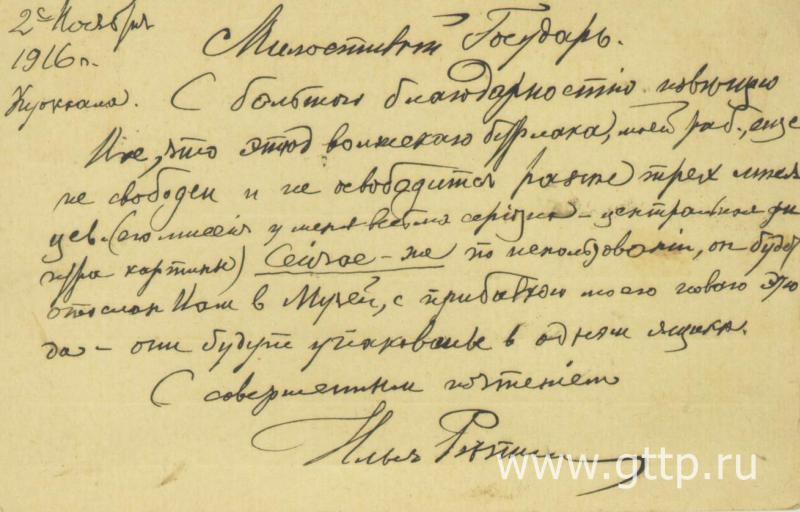 2е Ноября
1916 г.
Куоккала.
Милостивый Государь.
С большою благодарностію извещаю
Вас, что этюд волжскаго бурлака, моей раб., еще
не свободен и не освободится ранее трех меся
цев. (его миссія у меня весьма серіозна – центральная фи
гура картины) Сейчас-же по использованіи, он будет
отослан Вам в Музей, с прибавкою моего новаго этю
да – они будут упакованы в одном ящике.
С совершенным почтеніем
Илья Репин
www.gttp.ru